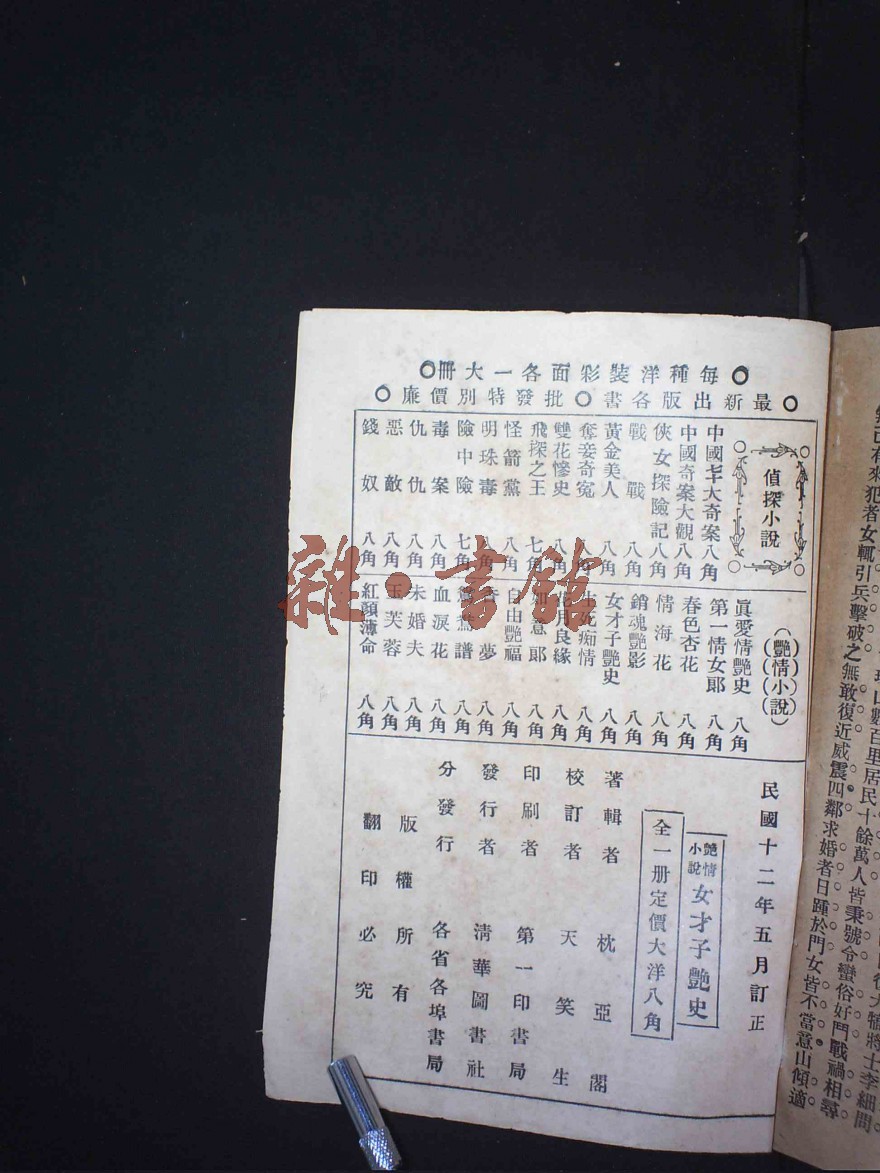 ○每種洋裝彩面各一大冊○
○最新出版各書○批發特別價廉○
偵探小說
中國七十大奇案 八角
中國奇案大觀 八角
俠女探險記 八角
戰戰 八角
黃金美人 八角
奪妾奇冤 八角
雙花慘史 八角
飛探之王 七角
怪箭黨 八角
明珠毒 八角
險中險 七角
毒案 八角
仇仇 八角
惡敵 八角
錢奴 八角
(艷情小說)
眞愛情艷史 八角
第一情女郎 八角
春色杏花 八角
情海花 八角
銷魂艷影 八角
女才子艷史 八角
痴情 八角
花月良緣 八角
如意郎 八角
自由艷福 八角
夢 八角
鴛鴦譜 八角
血淚花 八角
未婚夫 八角
玉芙蓉 八角
紅顏薄命 八角
民國十二年五月訂正
艷情小說 女才子艷史
全一册定價大洋八角
著輯者 枕亞閣
校訂者 天笑生
印刷者 第一印書局
發行者 清華圖書社
分發行 各省各埠書局
版權所有
翻印必究
雜·書館
有來犯者女輒引兵擊破之無敢復近威震四鄰求婚者日踵於門女皆不當意山傾適
數百里居民十餘萬人皆秉號令蠻俗好鬥戰禍相尋
將士李細問